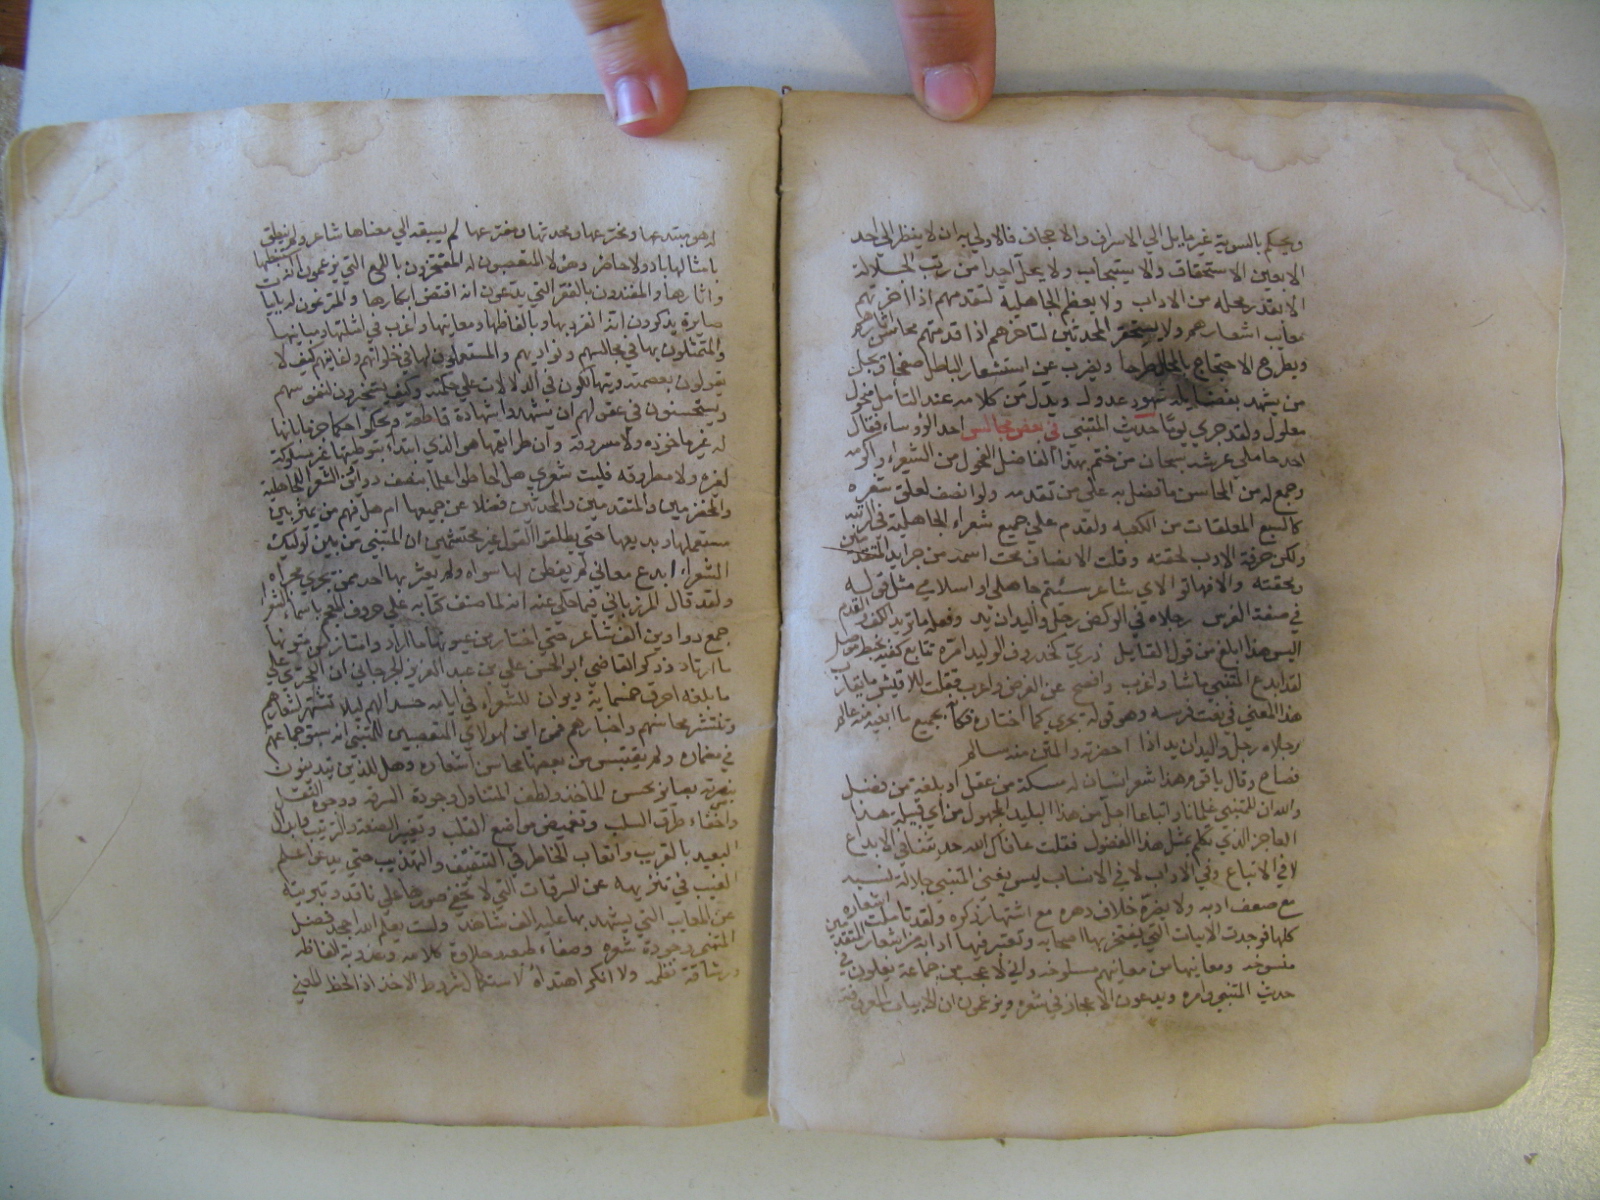 ويحكم بالسوية غير مايل الي الاسراف والاجحاف فالاولي به ان لا ينظر الي احد
الا بعين الاستحقاق والاستيجاب ولا يحل احدا من رتب الجلالة
الا بقدر محله من الاداب ولا يعظم الجاهلية لتقدمهم اذا اخرتهم
معايب اشعارهم ولا يستحقر المحدثين لتاخرهم اذا قدمتهم محاسن اثارهم
ويطرح الاحتجاج بالمحال طرحا ويضرب عن استشعار الباطل صفحا ويجل
من يشهد بفضايله شهود عدول ويدل من كلامه عند التامل منخول
معلول ولقد جري يوما حديث المتنبي في بعض مجالس احد الرؤساء فقال
احد حاملي عرشه سبحان من ختم بهذا الفاضل الفحول من الشعراء واكرمه
وجمع له من المحاسن ما فضل به علي من تقدمه ولو انصف لعلق شعره
كالسبع المعلقات من الكعبه ولقدم علي جميع شعراء الجاهلية في الرتبه
ولكن حرفة الادب لحقته وقلت الانصاف محت اسمه من جرايد المتقدمين
ومحقته والا فهاتوا لاي شاعر شئتم جاهلي او اسلامي مثل قوله
في صفة الفرس رجلاه في الركض رجل واليدان يد وفعله ما تريد الكف والقدم
اليس هذا ابلغ من قول القايل درير كخدروف الوليد امره تتابع كفيه بخيط موصل
لقد ابدع المتنبي ما شا واغرب وافصح عن الغرض واعرب فقلت للاقيشر ما يقارب
هذا المعني في نعت فرسه وهو قوله يجري كما اختاره فكأن بجميع ما ابغيه منه عالم
رجلاه رجل واليدان يد اذا احضرته والمتن منه سالم
فصاح وقال يا قوم هذا شعر انسان له مسكة من عقل او بلغة من فضل
والله ان للمتنبي غلمانا واتباعا اجل من هذا البليد المجهول من اي قبيلة هذا
العاجز الذي تكلم بمثل هذا الفضول فقلت عافاك الله حديثنا في الابداع
لا في الاتباع وفي الاداب لا في الانساب ليس يغني المتنبي جلالة نسبه
مع ضعف ادبه ولا يضره خلاف دهره مع اشتهار ذكره ولقد تاملت اشعاره
كلها فوجدت الابيات التي يفتخر بها اصحابه وتعتبر فيها ادابه من اشعار المتقدمين
منسوخه ومعانيها من معانيهم مسلوخه واني لاعجب من جماعة يغلون في
حديث المتنبي وامره ويدعون الاعجاز في شعره ويزعمون ان الابيات المعروفة
له هو مبتدعها ومخترعها ومحدثها ومفترعها لم يسبقه الي معناها شاعر ولم ينطق
بامثالها باد ولا حاضر وهؤلا المتعصبون له المفتخرون باللمع التي يزعمون انه استنبطها
واثارها والمعتدون بالفقر التي يدعون انه افتض ابكارها والمترنمون له بابيات
سايرة يذكرون انه انفرد بها وبالفاظها ومعانيها واغرب في امثلتها ومبانيها
والمتمثلون بها في مجالسهم ونواديهم والمستعملون لها في خلواتهم واغانيهم كيف لا
يقولون بعصمته ويتهالكون في الدلالات علي حكمته وكيف يستجيزون لنفوسهم
ويستحسنون في عقولهم ان يشهدوا شهادة قاطعة ويحكموا حكما جزما بانها
له غير ماخوذه ولا مسروقة وان طرايقها هو الذي ابتدأ بتوطيتها غير مسلوكة
لغيره ولا مطروقه فليت شعري هل احاطوا علما بنصف دواوين الشعراء للجاهلية
والمخضرمين والمتقدمين والمحدثين فضلا عن جميعها ام هل فيهم من يميز بين
مستعملها وبديعها حتي يطلقوا القول غير محتشمين ان المتنبي من بين اوليك
الشعراء ابدع معاني لم يفطن لها سواه ولم يعثر بها احد ممن يجري مجراه
ولقد قال المرزباني فيما حكي عنه انه لما صنف كتابه علي حروف المعجم باسماء الشعراء
جمع دواوين الف شاعر حتي اختار من عيونها ما اراد وامتاز من متونها
ما ارتاد وذكر القاضي ابو الحسن علي بن عبد العزيز الجرجاني ان البحتري علي
ما بلغه احرق خمسماية ديوان للشعراء في ايامه حسدا لهم ليلا تشتهر اشعارهم
وتنتشر محاسنهم واخبارهم فمن اين لهولاي المتعصبين للمتنبي انه سبق جماعتهم
في مضماره ولم يقتبس من بعضها محاسن اشعاره وهل للذين يتدينون
بنصرته بصاير بحسن الماخذ ولطف المتناول وجودة السرقه ووجوه النقل
واخفاء طرق السلب وتغميض مواضع القلب وتغيير الصنعة والترتيب وابدال
البعيد بالقريب واتعاب الخاطر في التثقيف والتهذيب حتي يدعوا علم
الغيب في تنزيهه عن السرقات التي لا تخفي صورها علي ناقد وتبريته
عن المعايب التي يشهد بها عليه الف شاهد ولست يعلم الله اجحد فضل
المتنبي وجودة شعره وصفاء طبعه وحلاوة كلامه وعذوبة الفاظه
ورشاقة نظمه ولا انكر اهتداه لاستكمال شروط الاخذ اذا لحظ المعني